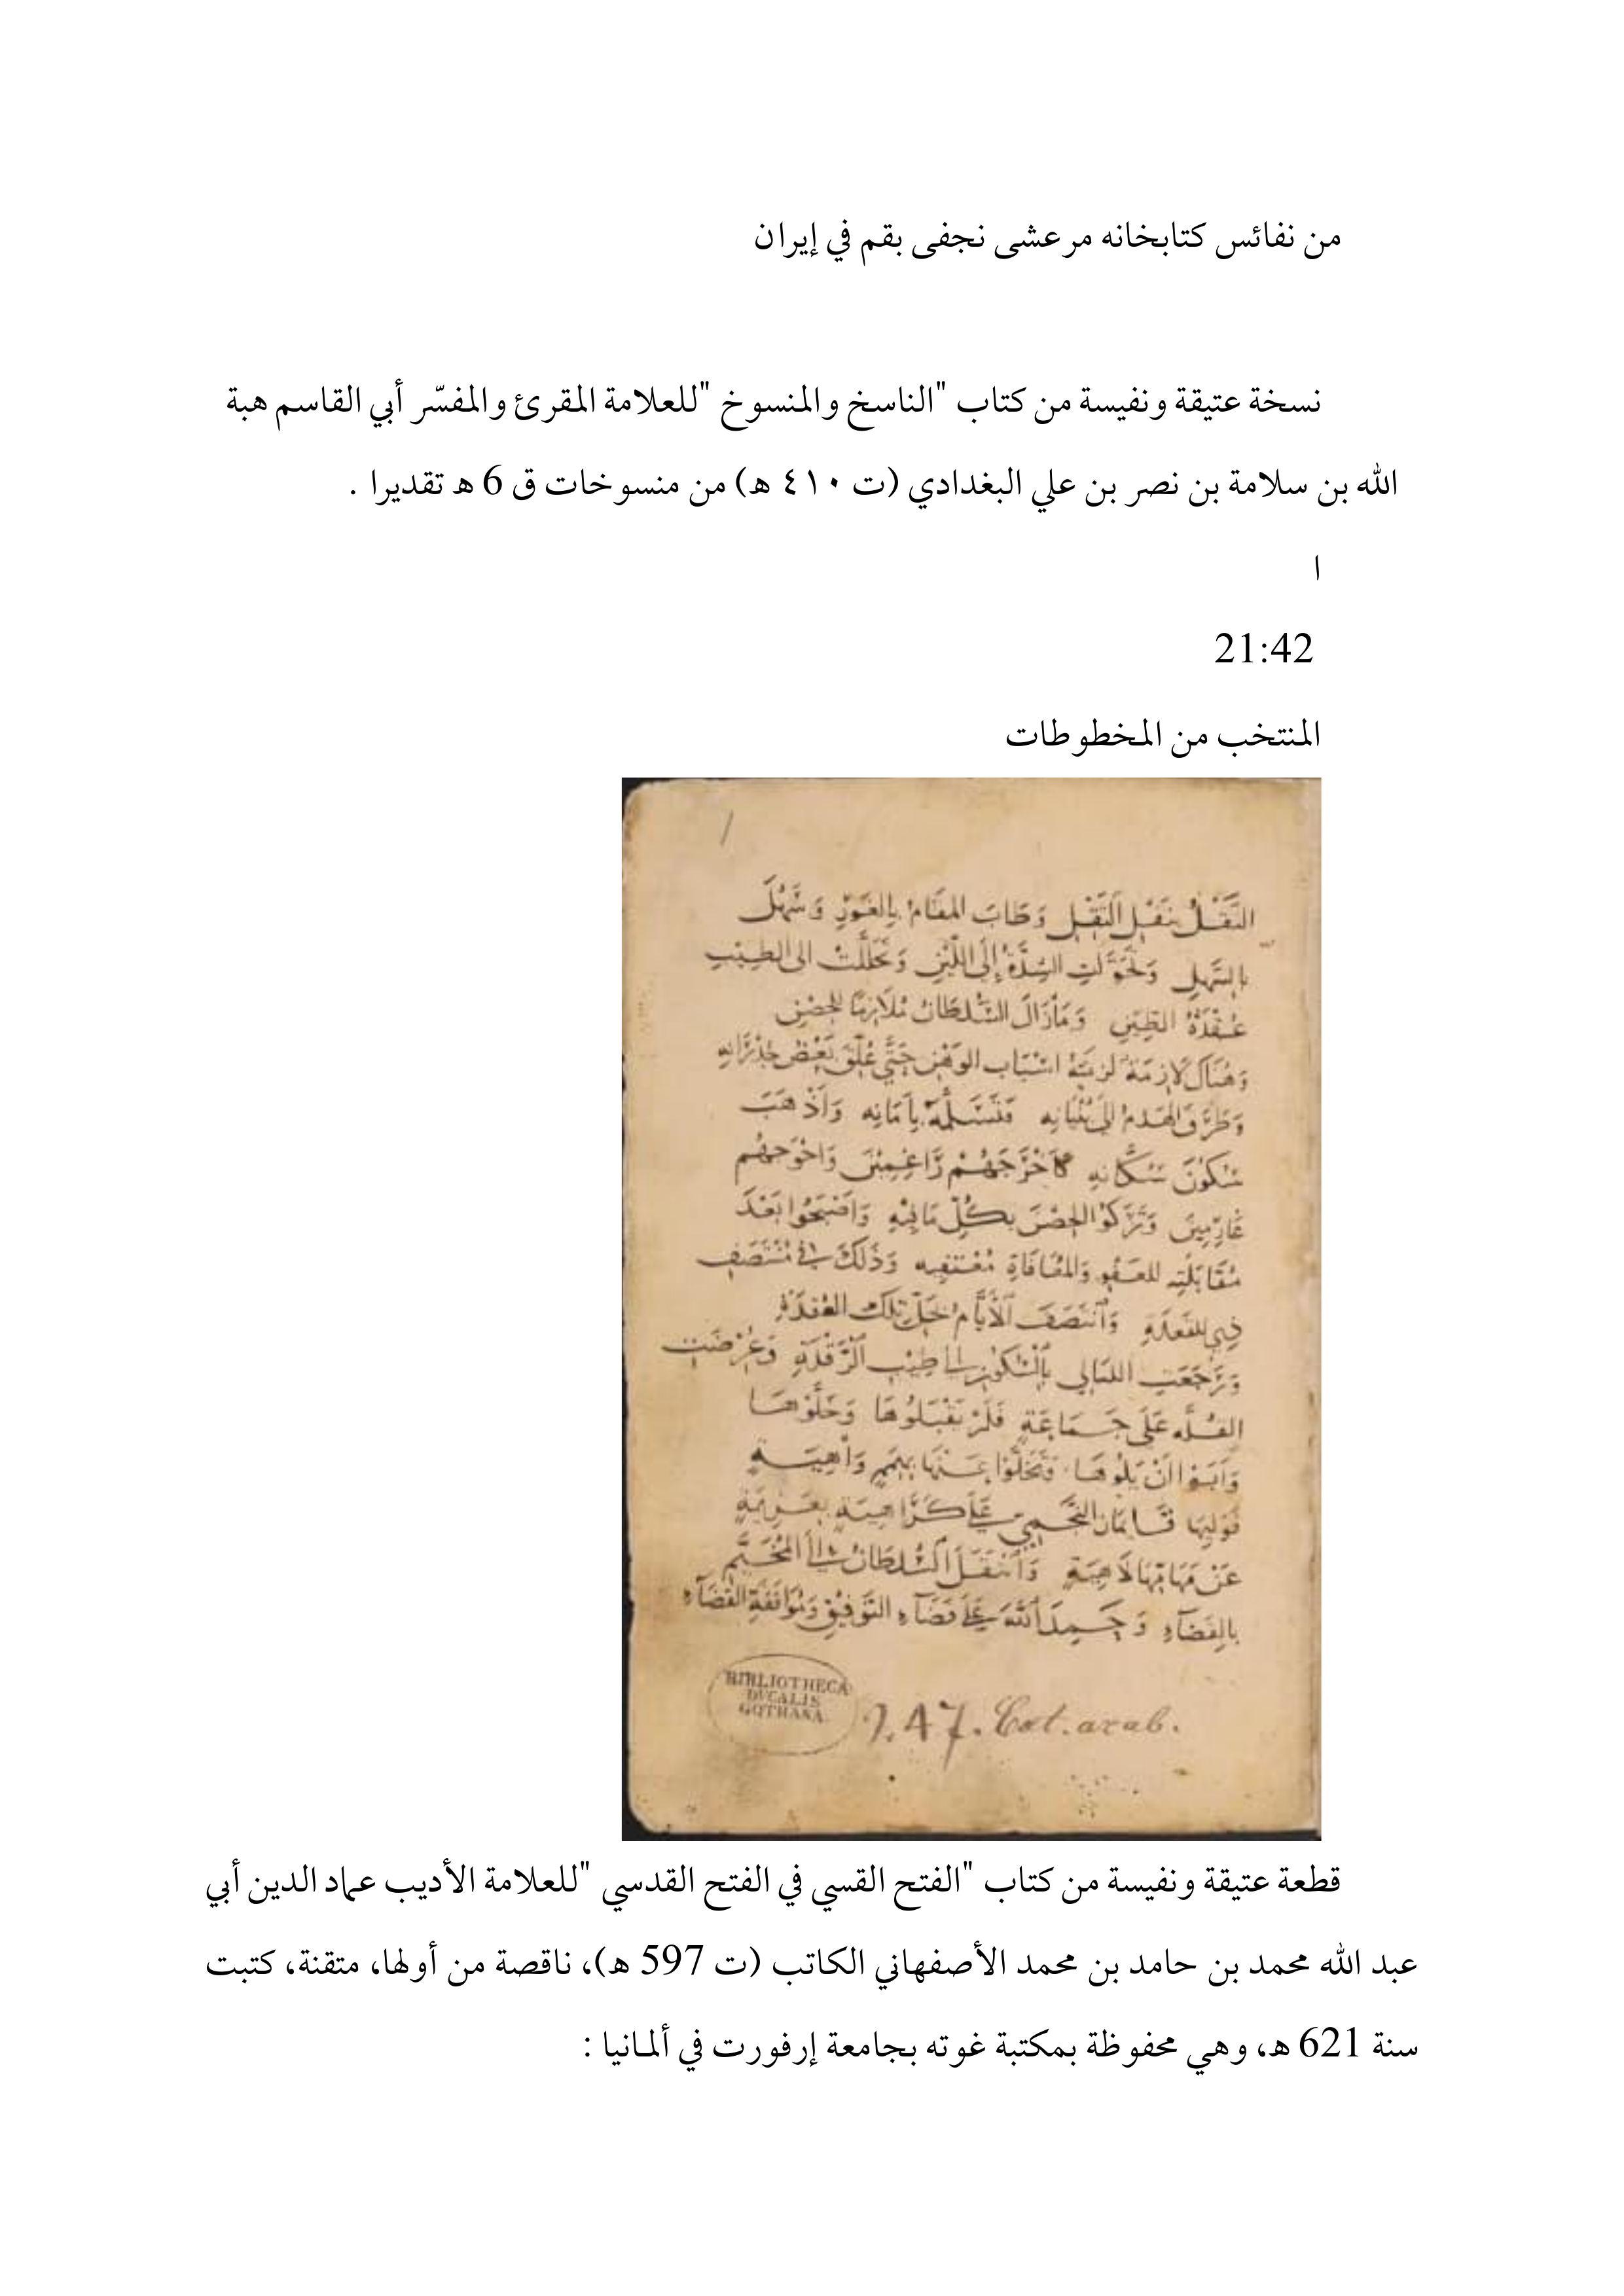 من نفائس كتابخانه مرعشى نجفى بقم في إيران
نسخة عتيقة ونفيسة من كتاب "الناسخ والمنسوخ "للعلامة المقرئ والمفسّر أبي القاسم هبة
الله بن سلامة بن نصر بن علي البغدادي (ت ٤١٠ هـ) من منسوخات ق 6 هـ تقديرا .
ا
21:42
المنتخب من المخطوطات
/
النَّقْلُ بنَقْلِ الثِّقْلِ وَطَابَ المقَامُ بِالغَوْرِ وَسَهُلَ
بالسَّهلِ وَتَحَوَّلَتِ الشِّدَّةُ إِلَى اللِّيْنِ وَتَحَلَّلَتْ الى الطِيْبِ
عُقْدَةُ الطِّيْنِ وَمَازَالَ السُّلطَانُ مُلَازِمًا للحِصْنِ
وَهُنَاكَ لَازِمَةٌ لَزِمَتْهُ اسْبَاب الوَهْنِ حَتَّى عُلِّقَ بَعْضُ جُدْرَانِهِ
وَطَرَّقَ الهَدمُ الى بُنْيَانِهِ فَتَسَلَّمَهُ بِأَمَانِهِ وَأَذْهَبَ
سُكُوْنَ سُكَّانِهِ فَأَخْرَجَهُمْ رَاغِمِيْنَ وَاخْوَجَهُم
غَارِمِيْنَ وَتَرَكُوْا الحِصْنَ بِكُلِّ مَا فِيْهِ وَاَصْبَحُوْا بَعْدَ
مُقَابَلَتِهِ للعَفْوِ وَالمُعَافَاةِ مُعْتَفِيهِ وَذَلِكَ في مُنْتَصَفِ
ذِي القَعدَةِ وَٱنْتَصَفَ ٱلأَيَّامُ بحَلِّ تِلكَ العُقْدَةِ
وَرَجَعَتِ الليَالِي بِالسُّكُوْنِ الى طِيْبِ الرَّقْدَةِ وَعُرِضَت
القُلَّه عَلَى جَمَاعَةٍ فَلَمْ يَقْبَلُوْهَا وَخَلَّوْهَا
وَأَبَوْا أَنْ يَلُوْهَا وَتَخَلَّوْا عَنْهَا بهِمَمٍ وَاهِيَةٍ
فَوَلِيَهَا قَايمَاز النَّجْمِيّ عَلى كَرَاهِيَةٍ بِعَزِيْمَةٍ
عَنْ مَهَامِّهَا لَاهِيَةٍ وَٱنْتَقَلَ السُّلطَانُ الى المُخَيَّمِ
بِالفَضَآءِ وَحَمِدَ ٱللَّهَ عَلى قَضَآءِ التَّوْفِيْقِ وَمُوَافَقَةِ القَضَآءِ
BIBLIOTHECA
DVCALIS
GOTHANA.
47. Cat. arab.
قطعة عتيقة ونفيسة من كتاب "الفتح القسي في الفتح القدسي "للعلامة الأديب عماد الدين أبي
عبد الله محمد بن حامد بن محمد الأصفهاني الكاتب (ت 597 هـ)، ناقصة من أولها، متقنة، كتبت
سنة 621 هـ، وهي محفوظة بمكتبة غوته بجامعة إرفورت في ألمانيا :